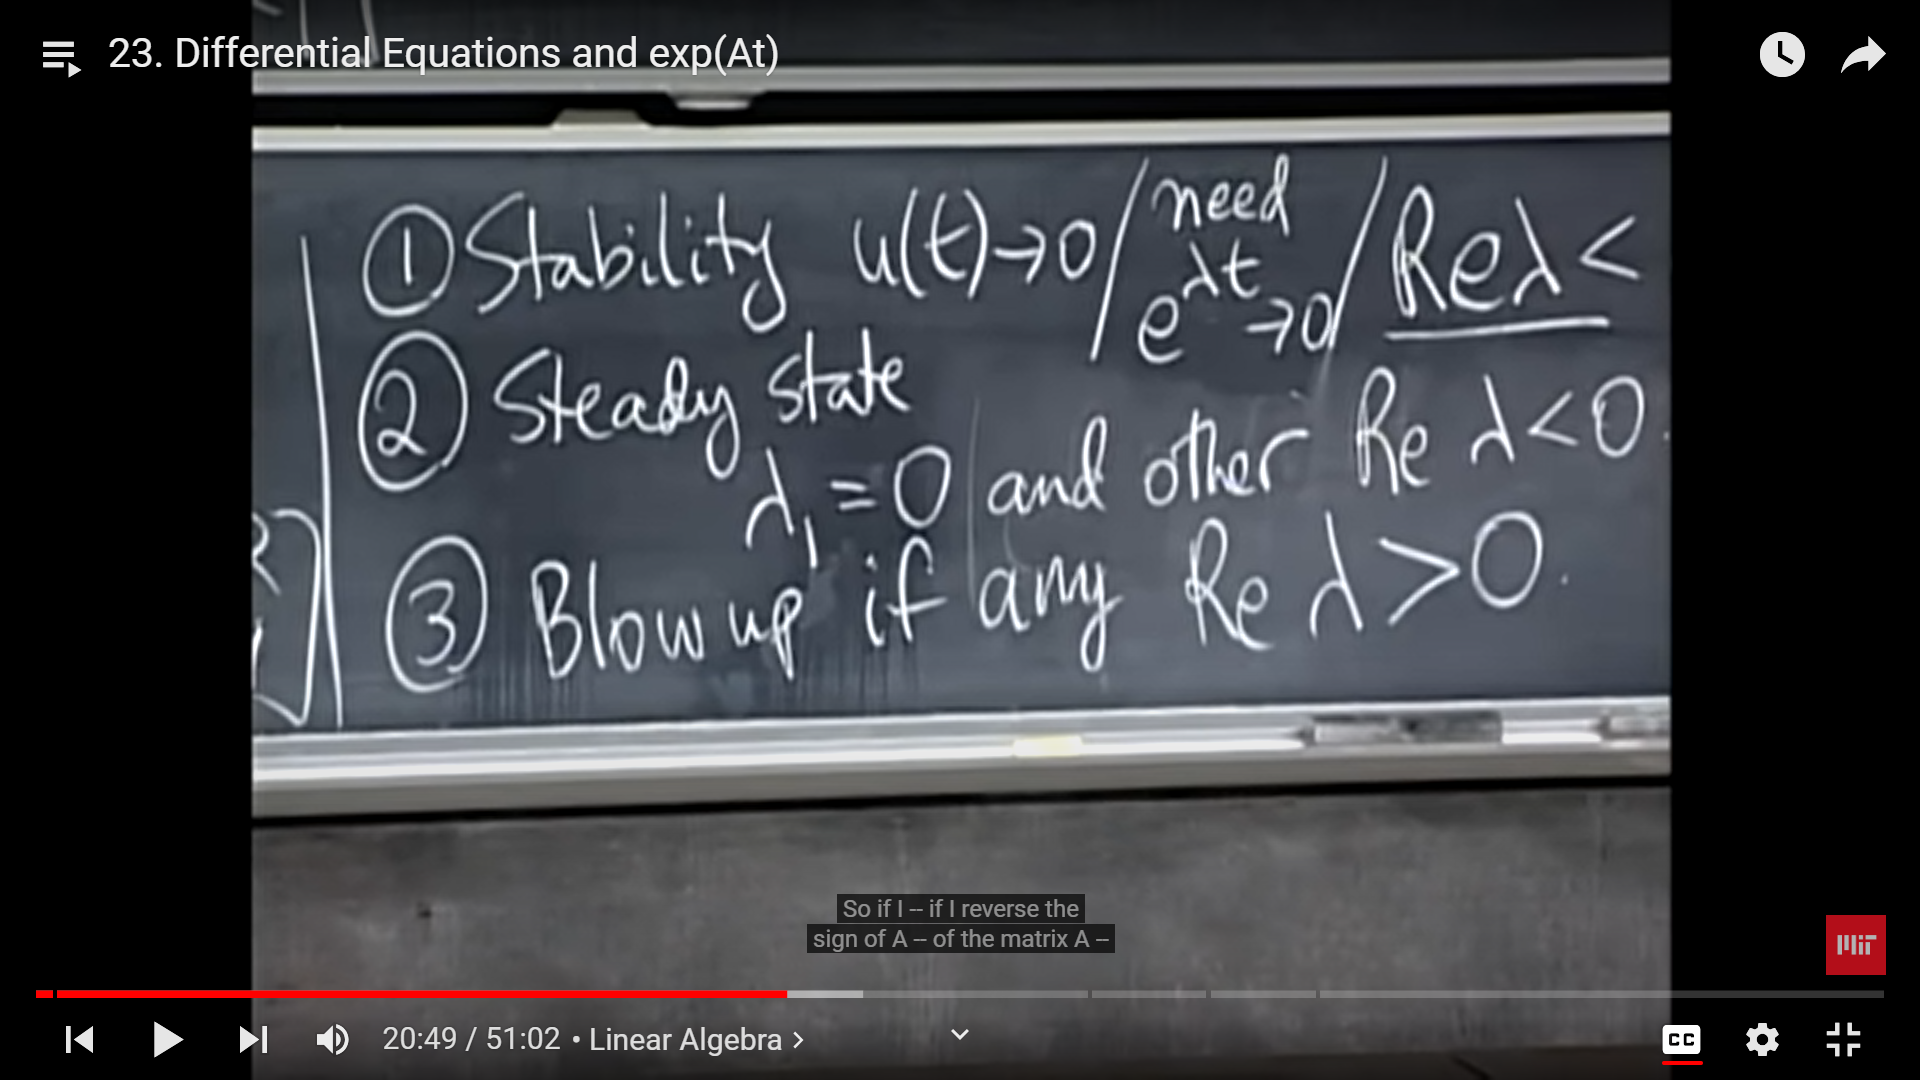 23. Differential Equations and exp(At)
① Stability u(t)→0 / need e^λt →0 / Re λ <
② Steady state
λ₁ = 0 and other Re λ < 0.
③ Blow up if any Re λ > 0.
So if I -- if I reverse the
sign of A -- of the matrix A --
MIT
20:49 / 51:02 • Linear Algebra >
CC